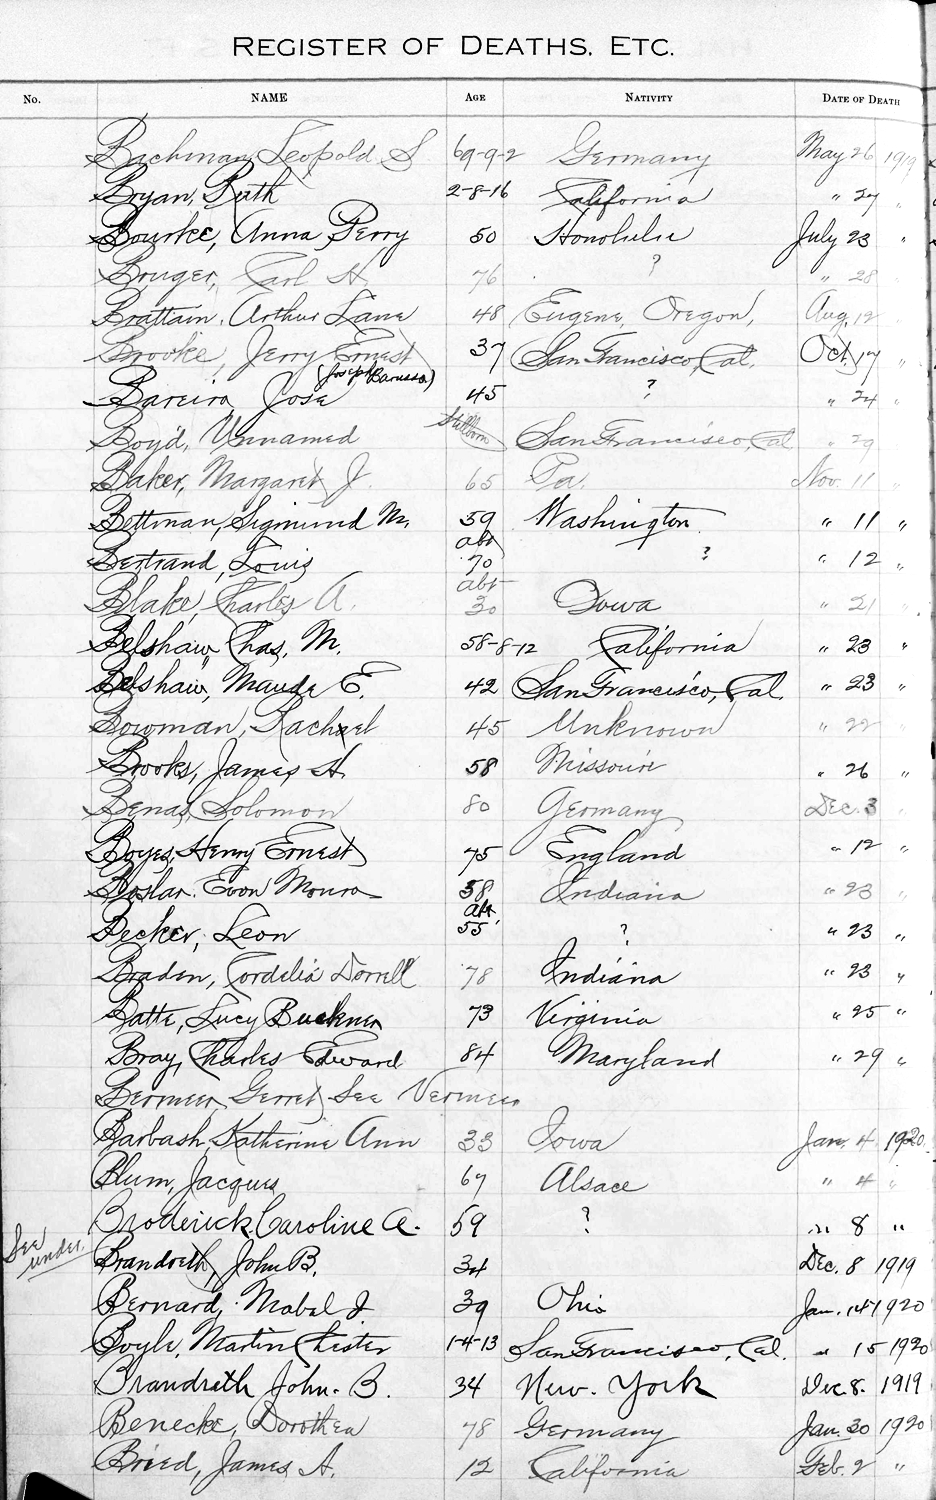 REGISTER OF DEATHS, ETC.
No. NAME AGE NATIVITY DATE OF DEATH
Bachman, Leopold S 69-9-2 Germany May 26 1919
Bryan, Ruth 2-8-16 California " 27 "
Bourke, Anna Perry 50 Honolulu July 23 "
Bruger, Carl H. 76 ? " 28 "
Brattain, Arthur Lane 48 Eugene, Oregon, Aug. 12 "
Brooke, Jerry Ernest 37 San Francisco, Cal. Oct. 17 "
(Joseph Barussa)
Bareiro, Jose 45 ? " 24 "
Boyd, Unnamed Stillborn San Francisco, Cal " 29 "
Baker, Margaret J. 65 Pa. Nov. 11 "
Bettman, Sigmund M. 59 Washington " 11 "
Bertrand, Louis abt 70 ? " 12 "
Blake, Charles A. abt 30 Iowa " 21 "
Belshaw, Chas. M. 58-8-12 California " 23 "
Belshaw, Maude E. 42 San Francisco, Cal. " 23 "
Bowman, Rachael 45 Unknown " 22 "
Brooks, James H. 58 Missouri " 26 "
Benas, Solomon 80 Germany Dec. 3 "
Boyes, Henry Ernest 75 England " 12 "
Boslar. Evon Monro 58 Indiana " 23 "
Becker, Leon abt 55 ? " 23 "
Braden, Cordelia Dorrell 78 Indiana " 23 "
Batte, Lucy Buckner 73 Virginia " 25 "
Bray, Charles Edward 84 Maryland " 29 "
Bermeer, Gerret, See Vermeer
Barbash, Katherine Ann 33 Iowa Jan. 4 1920
Blum, Jacques 67 Alsace " 4 "
Broderick, Caroline A. 59 ? " 8 "
See under Brandreth, John B. 34 Dec. 8 1919
Bernard, Mabel J. 39 Ohio Jan. 14 1920
Boyle, Martin Chester 1-4-13 San Francisco, Cal. " 15 1920
Brandreth John. B. 34 New. York Dec 8. 1919
Benecke, Dorothea 78 Germany Jan. 30 1920
Bried, James A. 12 California Feb. 2 "